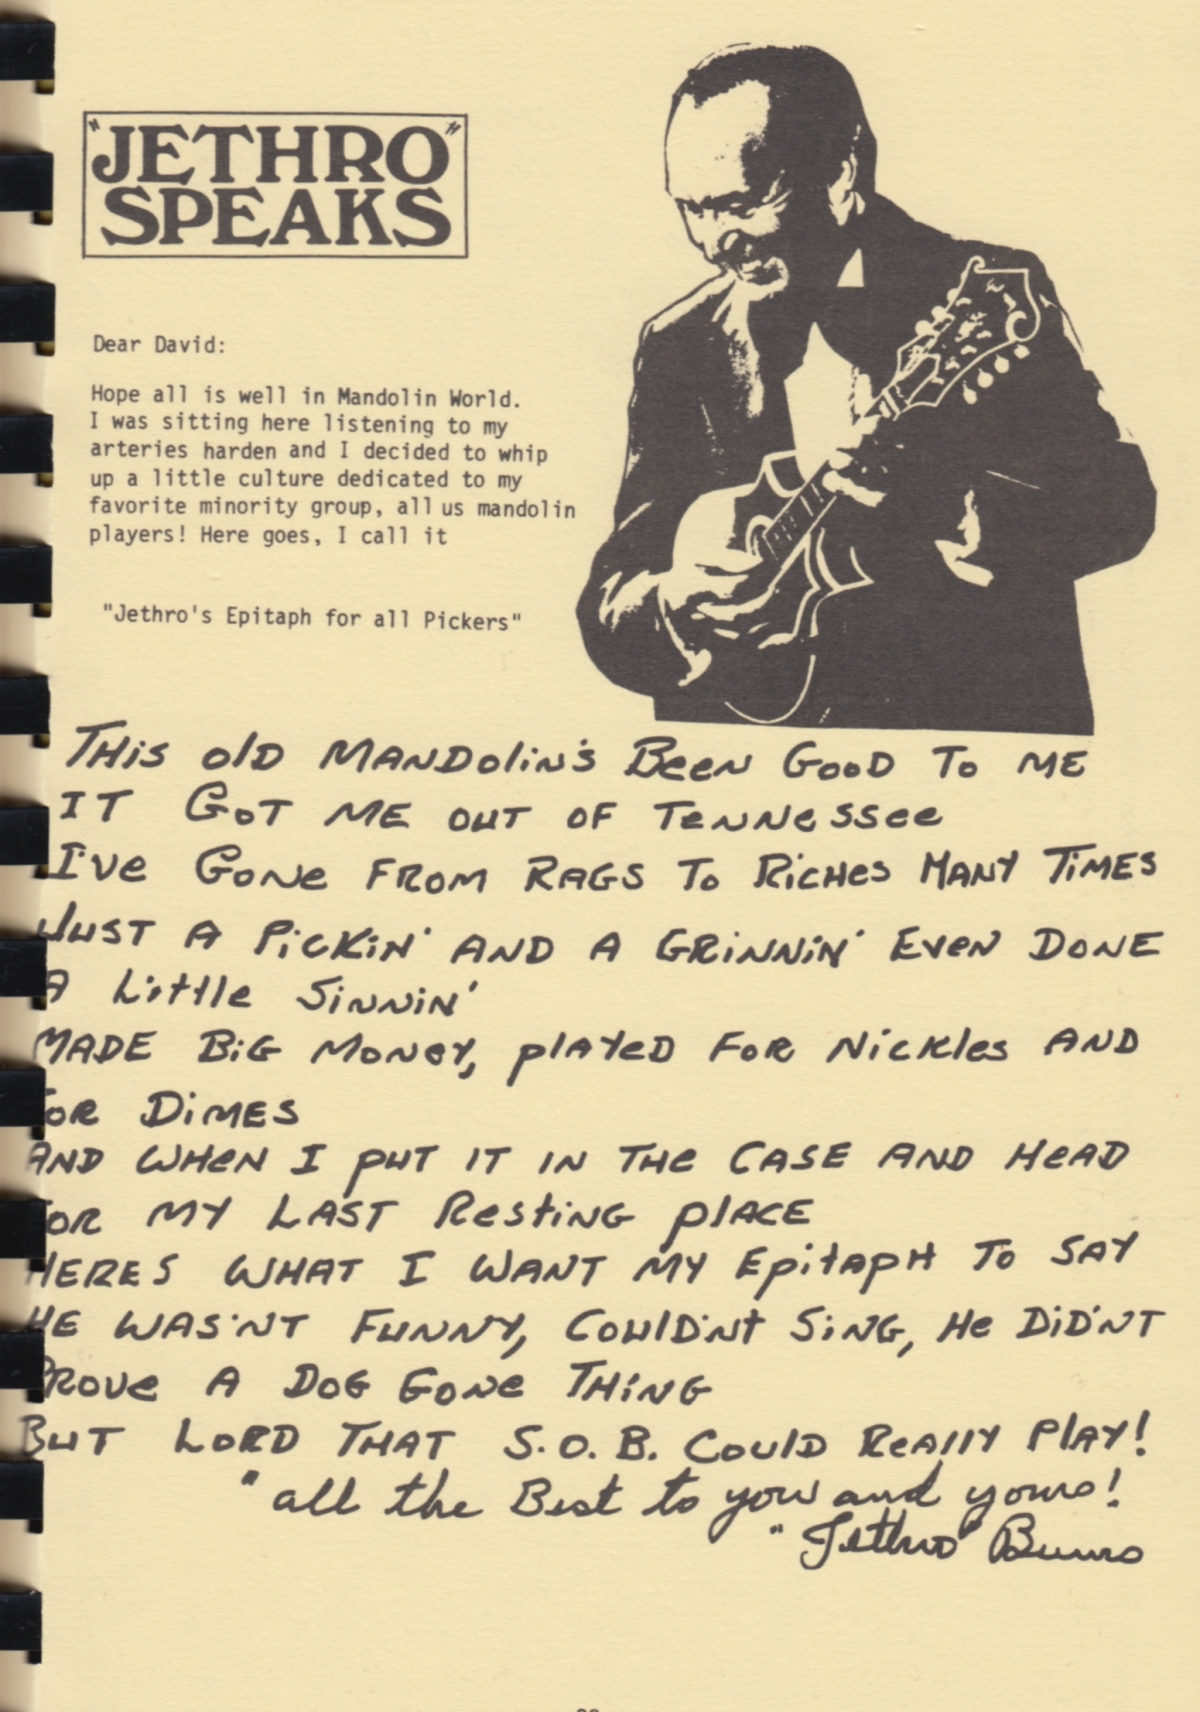 "JETHRO"
SPEAKS
Dear David:
Hope all is well in Mandolin World.
I was sitting here listening to my
arteries harden and I decided to whip
up a little culture dedicated to my
favorite minority group, all us mandolin
players! Here goes, I call it
"Jethro's Epitaph for all Pickers"
THiS olD MANDolin's Been GooD To ME
IT GoT ME OUT OF TeNNessee
I've GoNe FROM RAGS To RiCHes MANY TiMES
JUST A PiCKiN' AND A GRiNNiN' EveN DONE
A Little SiNNiN'
MADE BiG MoNey, plAYeD FoR NicKles AND
FoR DiMES
AND WHeN I puT IT IN THe CASE AND HeAD
FOR MY LAST RestiNG plACE
HERES WHAT I WANT MY EpitapH To SAY
HE WAS'NT FUNNY, COUlD'Nt SiNG, He DiD'NT
PROve A DOG GoNe THiNG
BUT LoRD THAT S.O.B. CoulD ReAllY PlAY!
"all the Best to you and yours!
"Jethro" Burns